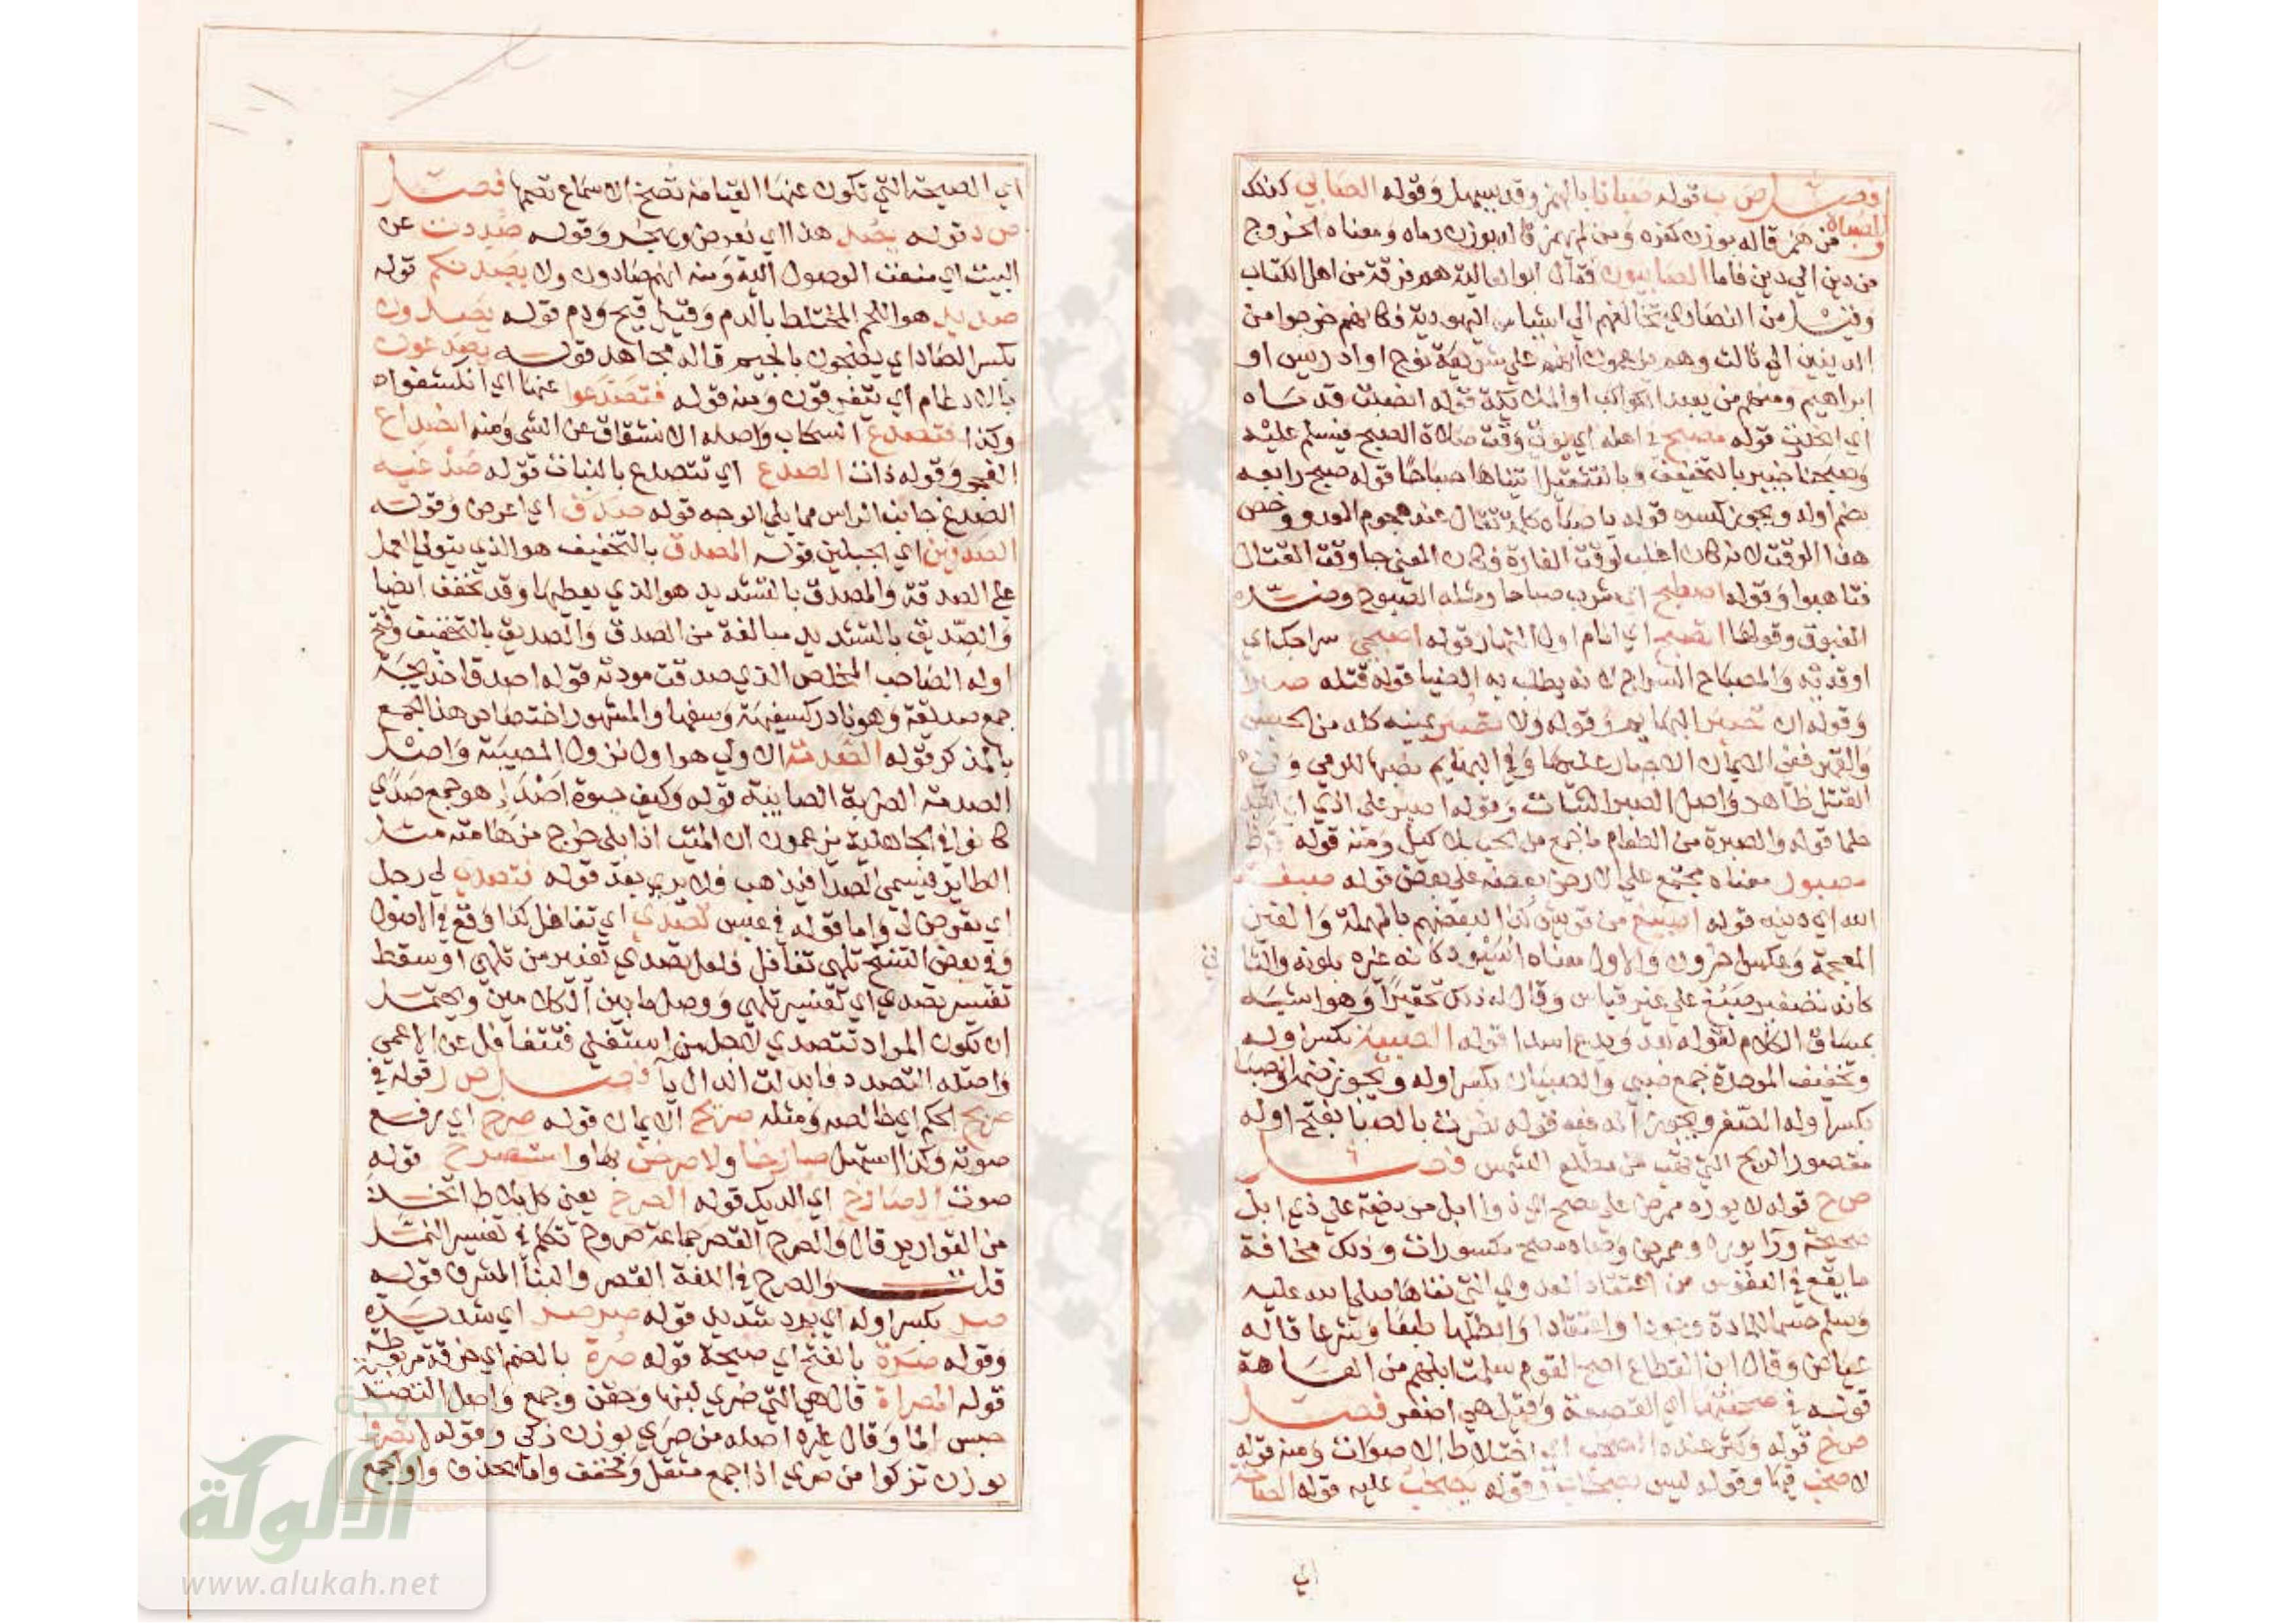 فصل ص ب قوله صبانا بالهمز وقد يسهل وقوله الصابي كذلك
والصباة من همز قاله بوزن كفرة ومن لم يهمز قاله بوزن رماه ومعناه الخروج
من دين الي دين فاما الصابيون فقال ابو العالية هم فرقة من اهل الكتاب
وقيل من النصاري تخالفهم الي اشيا من اليهودية فكانهم خرجوا من
الدينين الي ثالث وهم يزعمون انهم علي شريعة نوح او ادريس او
ابراهيم ومنهم من يعبد الكواكب او الملايكة قوله انصبت قدماه
اي انحدرت قوله مصبح في اهله اي يوتي وقت صلاة الصبح فيسلم عليه
وصبحنا خيبر بالتخفيف وبالتثقيل اتيناها صباحا قوله صبح رابعه
بضم اوله ويجوز كسره قوله يا صباه كلمة تقال عند هجوم العدو وخص
هذا الوقت لانه كان اغلب لوقت الغارة فكان المعني جا وقت القتال
فتاهبوا وقوله اصطبح اي شرب صباحا ومثله الصبوح وضده
الغبوق وقولها اتصبح اي انام اول النهار قوله اصبحي سراجك اي
اوقديه والمصباح السراج لانه يطلب به الضيا قوله قتله صبرا
وقوله ان تصبر البهايم وقوله ولا تصبر يمينه كله من الحبس
والقهر ففي الايمان الاجبار عليها وفي البهايم نصبها للرمي وفي
القتل ظاهر واصل الصبر الثبات وقوله اصبر علي اذي اي
حلما قوله والصبرة من الطعام ما جمع من الحب بلا كيل ومنه قوله قرظ
مصبور معناه مجتمع علي الارض بعضه علي بعض قوله صبغة
الله اي دينه قوله اصيبغ من قريش كذا لبعضهم بالمهملة والغين
المعجمة وعكس اخرون والاول معناه اسيود كانه عيره بلونه والثا
ني
كانه تصغير ضبع علي غير قياس وقال له ذلك تحقيرا وهو اشبه
بمساق الكلام لقوله بعد ويدع اسدا قوله الصبية بكسر اوله
وتخفيف الموحدة جمع صبي والصبيان بكسر اوله ويجوز ضمه الصبا
بكسر اوله الصغر ويجوز قوله نصرت بالصبا بفتح اوله
مقصور الريح التي تهب من مطلع الشمس فصل
ص ح قوله لا يورد ممرض علي مصح اي ذو ابل مريضة علي ذي ابل
صحيحة ورا يورد وممرض وصاد مصح مكسورات وذلك مخافة
ما يقع في النفوس من اعتقاد العدوي التي نفاها صلي الله عليه
وسلم حسما للمادة وجودا واعتقادا وابطلها طبعا وشرعا قاله
عياض وقال ابن القطاع اصح القوم سلمت ابلهم من العاهة
قوله في صحفتها اي القصعة وقيل هي اصغر فصل
ص خ قوله وكثر عنده الصخب اي اختلاط الاصوات ومنه قوله
لا صخب فيها وقوله ليس بصخاب وقوله يصخب عليه قوله الصاخة
اي
اي الصيحة التي تكون عنها القيامة تصخ الاسماع تصمها فصل
ص د قوله يصد هذا اي يعرض ويهجر وقوله صددت عن
البيت اي منعت الوصول اليه ومنه انهم صادوك ولا يصدنكم قوله
صديد هو اللحم المختلط بالدم وقيل قيح ودم قوله يصدون
بكسر الصاد اي يضجون بالجيم قاله مجاهد قوله يصدعون
بالادغام اي يتفرقون ومنه قوله فتصدعوا عنها اي انكشفوا
وكذا فتصدع السحاب واصله الانشقاق عن الشي ومنه انصداع
الفجر وقوله ذات الصدع اي تتصدع بالنبات قوله صدغيه
الصدغ جانب الراس مما يلي الوجه قوله صدف اي اعرض وقوله
الصدفين اي الجبلين قوله المصدق بالتخفيف هو الذي يتولي العمل
علي الصدقة والمصدق بالتشديد هو الذي يعطيها وقد تخفف ايضا
والصديق بالتشديد مبالغة من الصدق والصديق بالتخفيف وفتح
اوله الصاحب المخلص الذي صدقت مودته قوله اصدقا خديجة
جمع صديقة وهو نادر كسفيهة وسفها والمشهور اختصاص هذا الجمع
بالمذكر قوله الصدمة الاولي هو اول نزول المصيبة واصل
الصدمة الضربة الصايبة قوله وكيف حيوة اصداء هو جمع صدي
كانوا في الجاهلية يزعمون ان الميت اذا بلي خرج من هامته مثل
الطاير فيسمي الصدا فيذهب فلا يري بعد قوله فتصدي لي رجل
اي تعرض لي واما قوله في عبس تصدي اي تغافل كذا وقع في الاصول
وفي بعض النسخ تلهي تغافل فلعل تصدي تغيير من تلهي او سقط
تفسير تصدي اي تفسير تلهي ووصل ما بين الكلامين ويحتمل
ان يكون المراد تتصدي لاجل من استغني فتتغافل عن الاعمي
واصله التصدد فابدلت الدال يا فصل ص ر قوله في
صريح الحكم اي خالصه ومثله صريح الايمان قوله صرخ اي يرفع
صوته وكذا استهل صارخا ولا صرخن بها واستصرخ قوله
صوت الصارخ اي الديك قوله الصرح يعني كل بلاط اتخذ
من القوارير قال والصرح القصر جماعته صروح تكلم في تفسير النمل
قلت والصرح في اللغة القصر والبنا المشرف قوله
صر بكسر اوله اي برد شديد قوله صرصر اي شديدة
وقوله صرة بالفتح اي صيحة قوله صرة بالضم اي خرقة مربوطة
قوله المصراة قال هي التي صري لبنها وحقن وجمع واصل التصرية
حبس الما وقال غيره اصله من صري بوزن زكي وقوله لا تصروا
بوزن تزكوا من صري اذا جمع مثقل ومخفف واما بحذف واو الجمع
شبكة
الألوكة
www.alukah.net